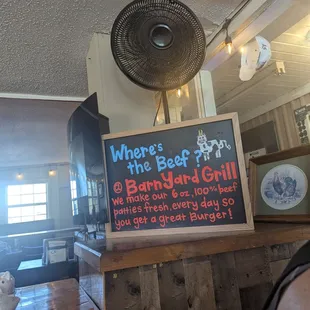 Where's
the Beef?
@ BarnYard Grill
We make our 6 oz, 100% beef
patties fresh, every day so
you get a great Burger!